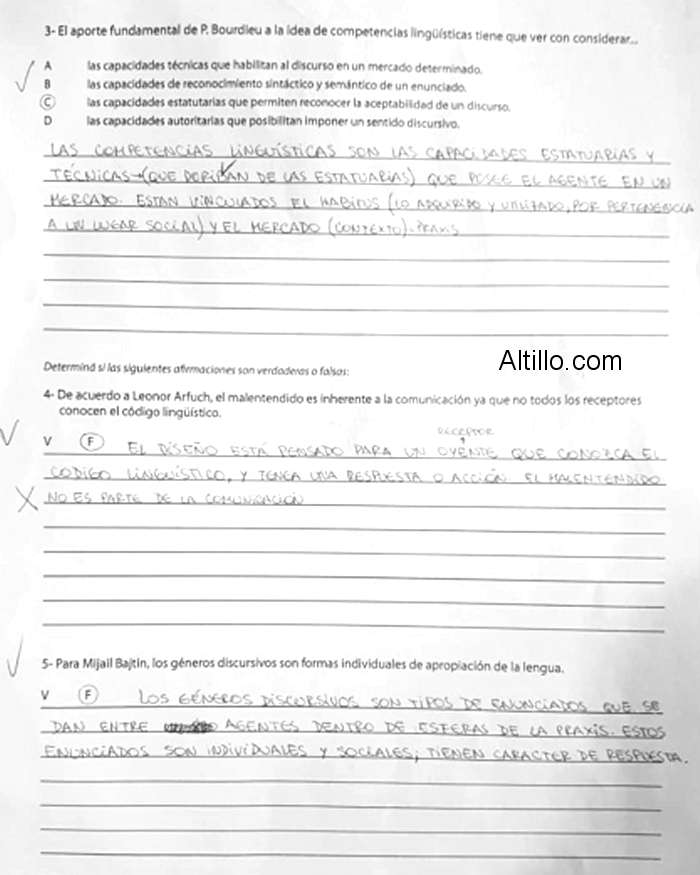 3- El aporte fundamental de P. Bourdieu a la idea de competencias lingüísticas tiene que ver con considerar...
A las capacidades técnicas que habilitan al discurso en un mercado determinado.
B las capacidades de reconocimiento sintáctico y semántico de un enunciado.
C las capacidades estatutarias que permiten reconocer la aceptabilidad de un discurso.
D las capacidades autoritarias que posibilitan imponer un sentido discursivo.
LAS COMPETENCIAS LINGUÍSTICAS SON LAS CAPACIDADES ESTATUARIAS Y
TÉCNICAS (QUE DERIBAN DE LAS ESTATUARIAS) QUE POSEE EL AGENTE EN UN
MERCADO. ESTAN VINCULADOS EL HABITUS (LO ADQUIRIDO Y UTILIZADO, POR PERTENENCIA
A UN LUGAR SOCIAL) Y EL MERCADO (CONTEXTO). PRAXIS
Altillo.com
Determiná si las siguientes afirmaciones son verdaderas o falsas:
4- De acuerdo a Leonor Arfuch, el malentendido es inherente a la comunicación ya que no todos los receptores
conocen el código lingüístico.
RECEPTOR
V F EL DISEÑO ESTÁ PENSADO PARA UN OYENTE QUE CONOZCA EL
CODIGO LINGUISTICO, Y TENGA UNA RESPUESTA O ACCIÓN. EL MALENTENDIDO
NO ES PARTE DE LA COMUNICACIÓN
5- Para Mijail Bajtin, los géneros discursivos son formas individuales de apropiación de la lengua.
V F LOS GÉNEROS DISCURSIVOS SON TIPOS DE ENUNCIADOS QUE SE
DAN ENTRE AGENTES DENTRO DE ESFERAS DE LA PRAXIS. ESTOS
ENUNCIADOS SON INDIVIDUALES Y SOCIALES; TIENEN CARACTER DE RESPUESTA.